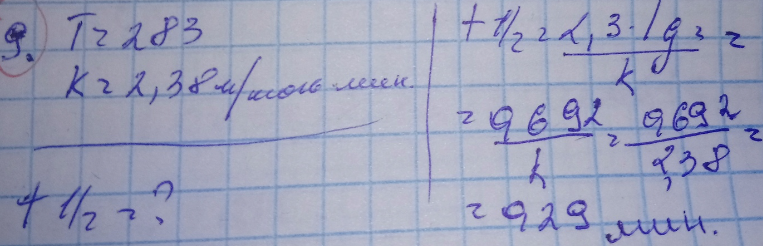 9. T = 283
K = 2,38 л/моль мин.
t 1/2 = ?
t 1/2 = 2,3 · lg 2 / k =
= 0,692 / k = 0,692 / 2,38 =
= 0,29 мин.